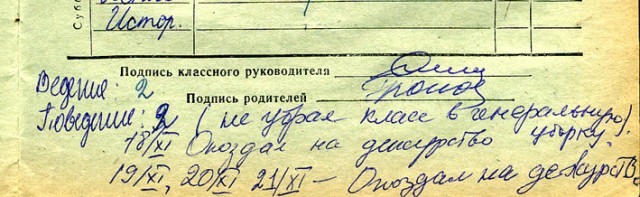 Истор.
Подпись классного руководителя
Ведение: 2
Подпись родителей
Поведение: 2 (не убрал класс в генеральную
уборку).
18/XI Опоздал на дежурство
19/XI, 20/XI 21/XI – Опоздал на дежурств